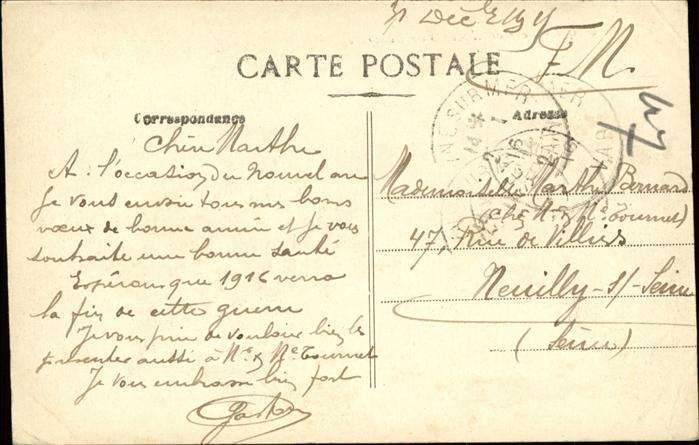 31 Déc
F.M.
CARTE POSTALE
Correspondance
Adresse
Chère Marthe
A l'occasion du Nouvel an
Je vous envoie tous mes bons
vœux de bonne année et je vous
souhaite une bonne santé
Espérons que 1916 verra
la fin de cette guerre
Je vous prie de vouloir bien les
présenter aussi à Mr & Me Tournet
Je vous embrasse bien fort
Gaston
SUR MER
47
Mademoiselle Marthe Bernard
(Chez Mr & Me Tournet)
47 Rue de Villiers
Neuilly-s/-Seine
(Seine)